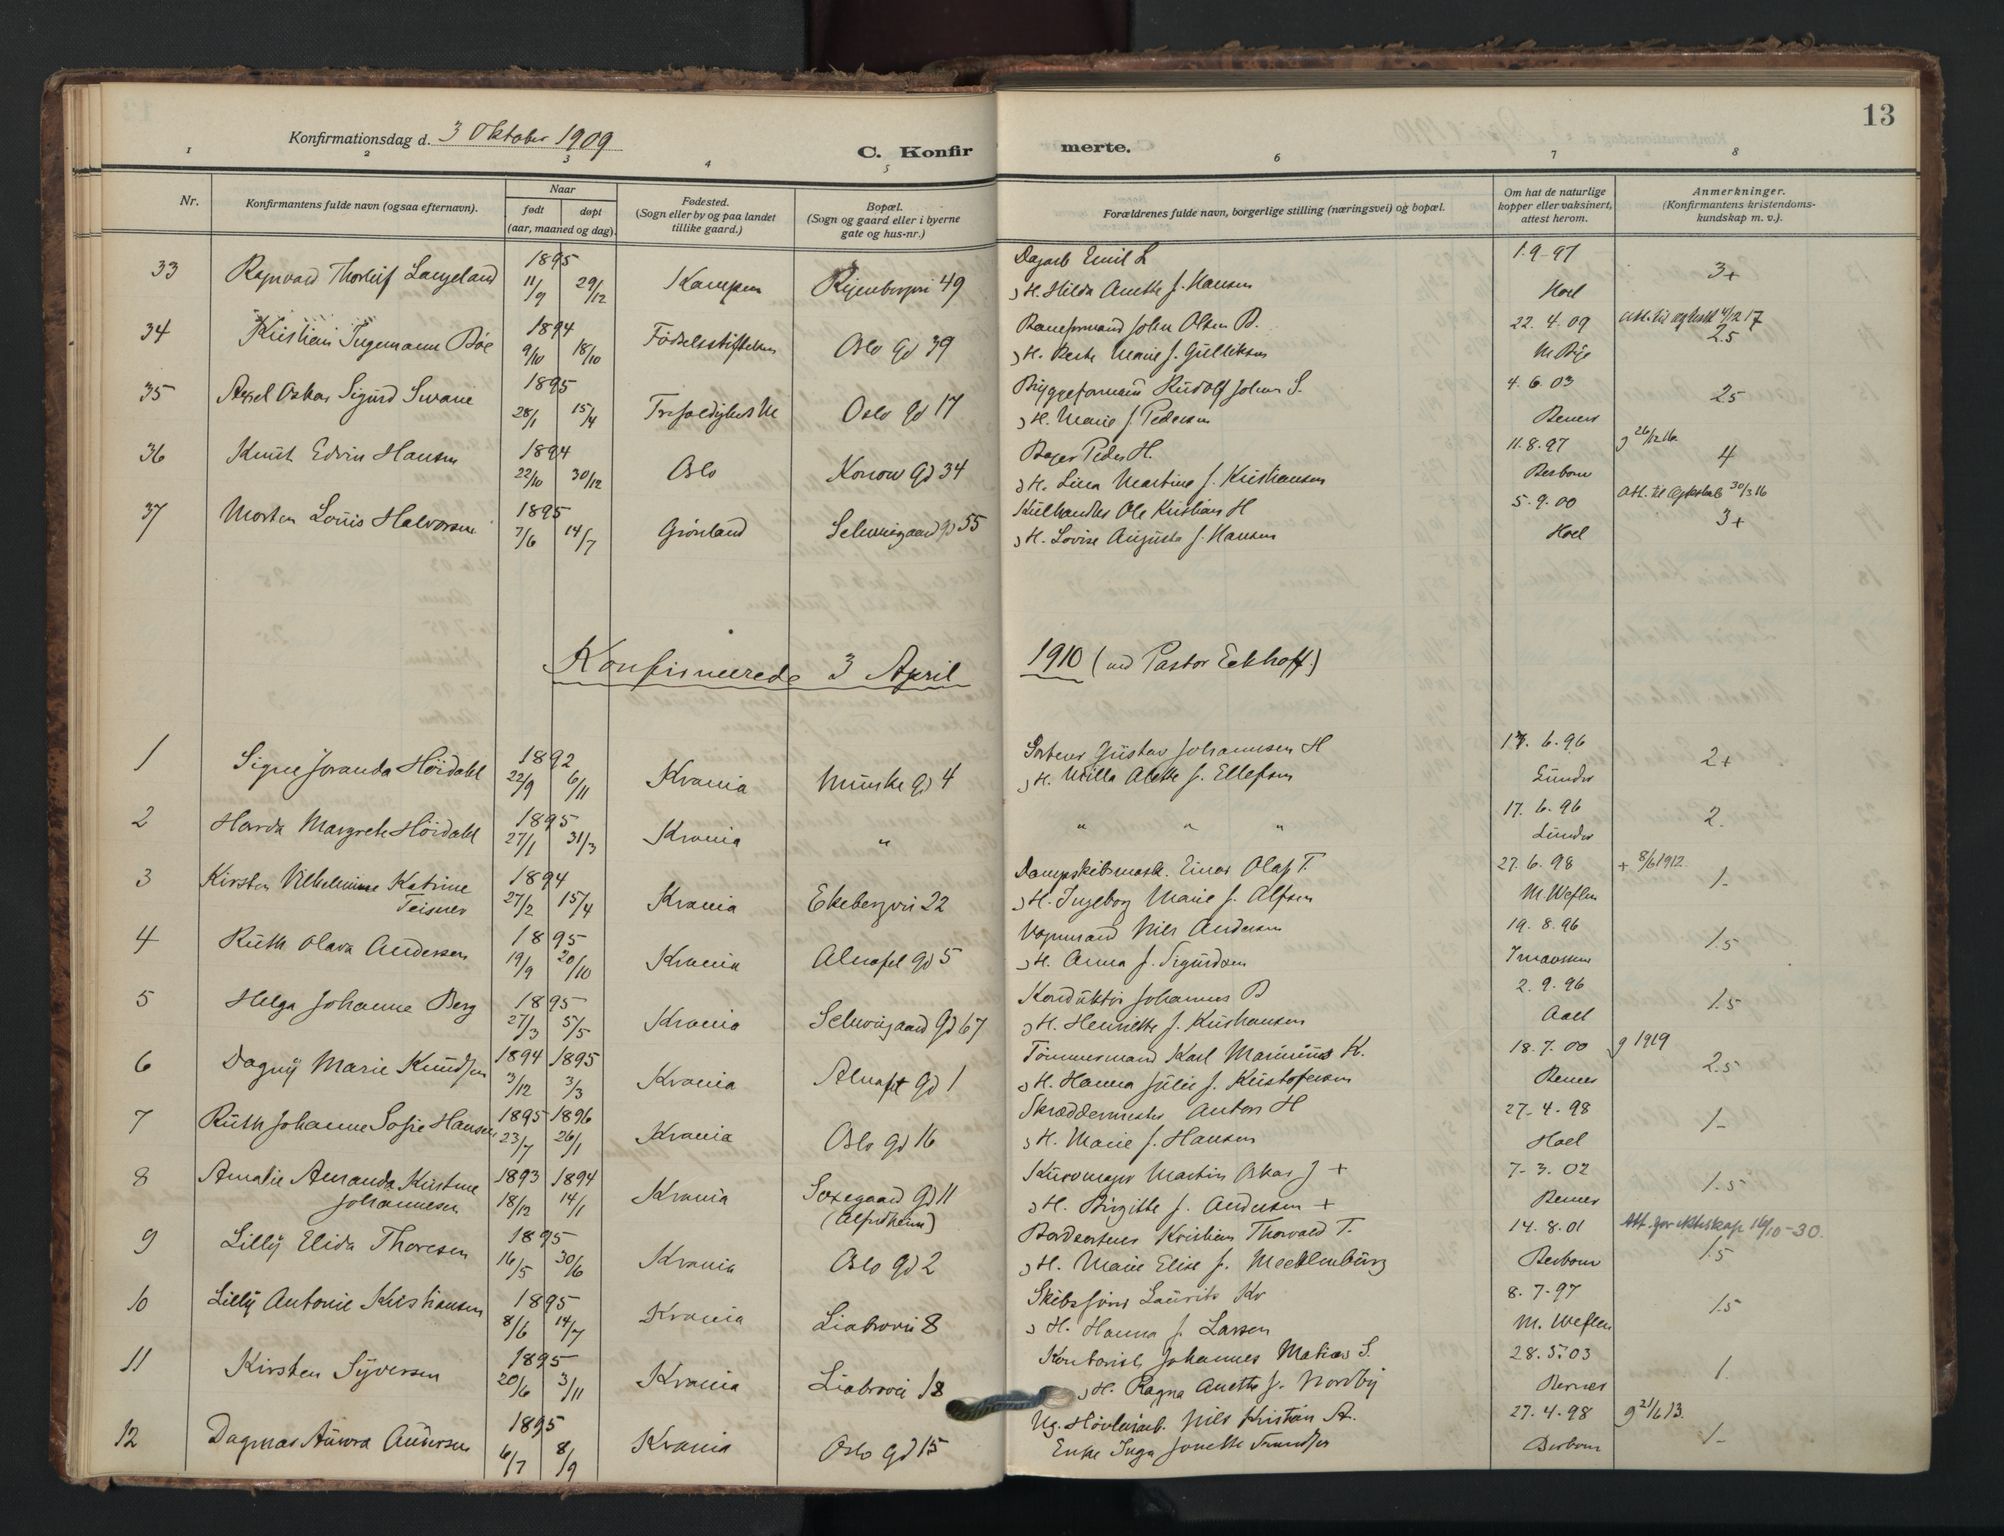 13
Konfirmationsdag d. 3 Oktober 1909
C. Konfirmerte.
1 2 3 4 5 6 7 8
Nr.
Konfirmantens fulde navn (ogsaa efternavn).
Naar
født døpt
(aar, maaned og dag).
Fødested.
(Sogn eller by og paa landet
tillike gaard.)
Bopæl.
(Sogn og gaard eller i byerne
gate og hus-nr.)
Forældrenes fulde navn, borgerlige stilling (næringsvei) og bopæl.
Om hat de naturlige
kopper eller vaksinert,
attest herom.
Anmerkninger.
(Konfirmantens kristendoms-
kundskap m. v.).
33 Ragnvald Thorleif Langeland 1895 11/9 29/12 Kampen 49 Dagarb Emil L 1.9-97 3+
H. Hilda Anette f. Hansen Hoel
34 Kristian Ingemann Bøe 1894 9/10 18/10 Fødselsstiftelsen Oslo gd 39 Baneformand John Olsen B. 22.4.09 2.5
H. Marie f. Gulliksen M. Bye
35 Axel Oskar Sigurd Svane 1895 28/1 15/4 Oslo gd 17 Bryggeformand Rudolf Johan S. 4.6.03 2.5
H. Marie f. Pedersen Berner
36 Knut Edvin Hansen 1894 22/10 30/12 Oslo Konow gd 34 Bager Peder H. 11.8.97 g 26/12 16 4
H. Lina Martine f. Kristiansen Berbom
37 Morten Louis Halvorsen 1895 7/6 14/7 Grønland Schweigaard gd 55 Kulhandler Ole Kristian H 5.9.00 30/3 16 3+
H. Lovise Augusta f. Hansen Hoel
Konfirmerede 3 April 1910 (ved Pastor Eckhoff.)
1 Signe Joranda Höidahl 1892 22/9 6/11 Krania Munke gd 4 Gustav Johannesen H 17.6.96 2+
H. Milla Alette f. Ellefsen Lunder
2 Harda Margrete Höidahl 1895 27/1 31/3 Krania " " " " 17.6.96 2.
Lunder
3 Kirsten Vilhelmine Katrine 1894 27/2 15/4 Krania Ekebergvei 22 Dampskibsmask. Einar Olaf T. 27.6.98 + 8/6 1912. 1-
Teisner H. Ingeborg Marie f. Alfsen M. Weflen
4 Ruth Olava Andersen 1895 19/9 20/10 Krania Alnafet gd 5 Vognmand Nils Andersen 19.8.96 1.5
H. Anna f. Sigurdsen
5 Helga Johanne Berg 1895 27/3 5/5 Krania Schweigaard gd 67 Konduktør Johannes B 2.9.96 1.5
H. Henriette f. Kristiansen Aael
6 Dagny Marie Knudsen 1894 1895 3/12 3/3 Krania Alnafet gd 1 Tømmermand Karl Marinius K. 18.7.00 g 1919 2.5
H. Hanna Julie f. Kristofersen Berner
7 Ruth Johanne Sofie Hansen 1895 1896 23/7 26/1 Krania Oslo gd 16 Skræddermester Anton H 27-4.98 1-
H. Marie f. Hansen Hoel
8 Amalie Amanda Kristine 1893 1894 18/12 14/1 Krania Saxegaard gd 11 Kurvmager Martin Oskar J + 7-3.02 1.5
Johannesen (Alfredheim) H. Birgitte f. Andersen + Berner
9 Lilly Elida Thoresen 1895 16/5 30/6 Krania Oslo gd 2 Bordsorterer Kristian Thorvald T. 14.8.01 Att. for ekteskap 16/10-30. 1.5
H. Marie Elise f. Mecklenburg Berbom
10 Lilly Antonie Kristiansen 1895 8/6 14/7 Krania Liabrovei 8 Skibsfører Laurits Kr 8.7-97 1.5
H. Hanna f. Larsen M. Weflen
11 Kirsten Syversen 1895 20/6 3/11 Krania Liabrovei 18 Kontorist Johannes Matias S. 28.5.03 1.
H. Ragna Anette f. Nordby Berner
12 Dagmar Aurora Andersen 1895 6/7 8/9 Krania Oslo gd 15 Ug. Høvleriarb. Nils Kristian A. 27.4.98 g 21/6 13. 1-
Enke Inga Jonette Berbom